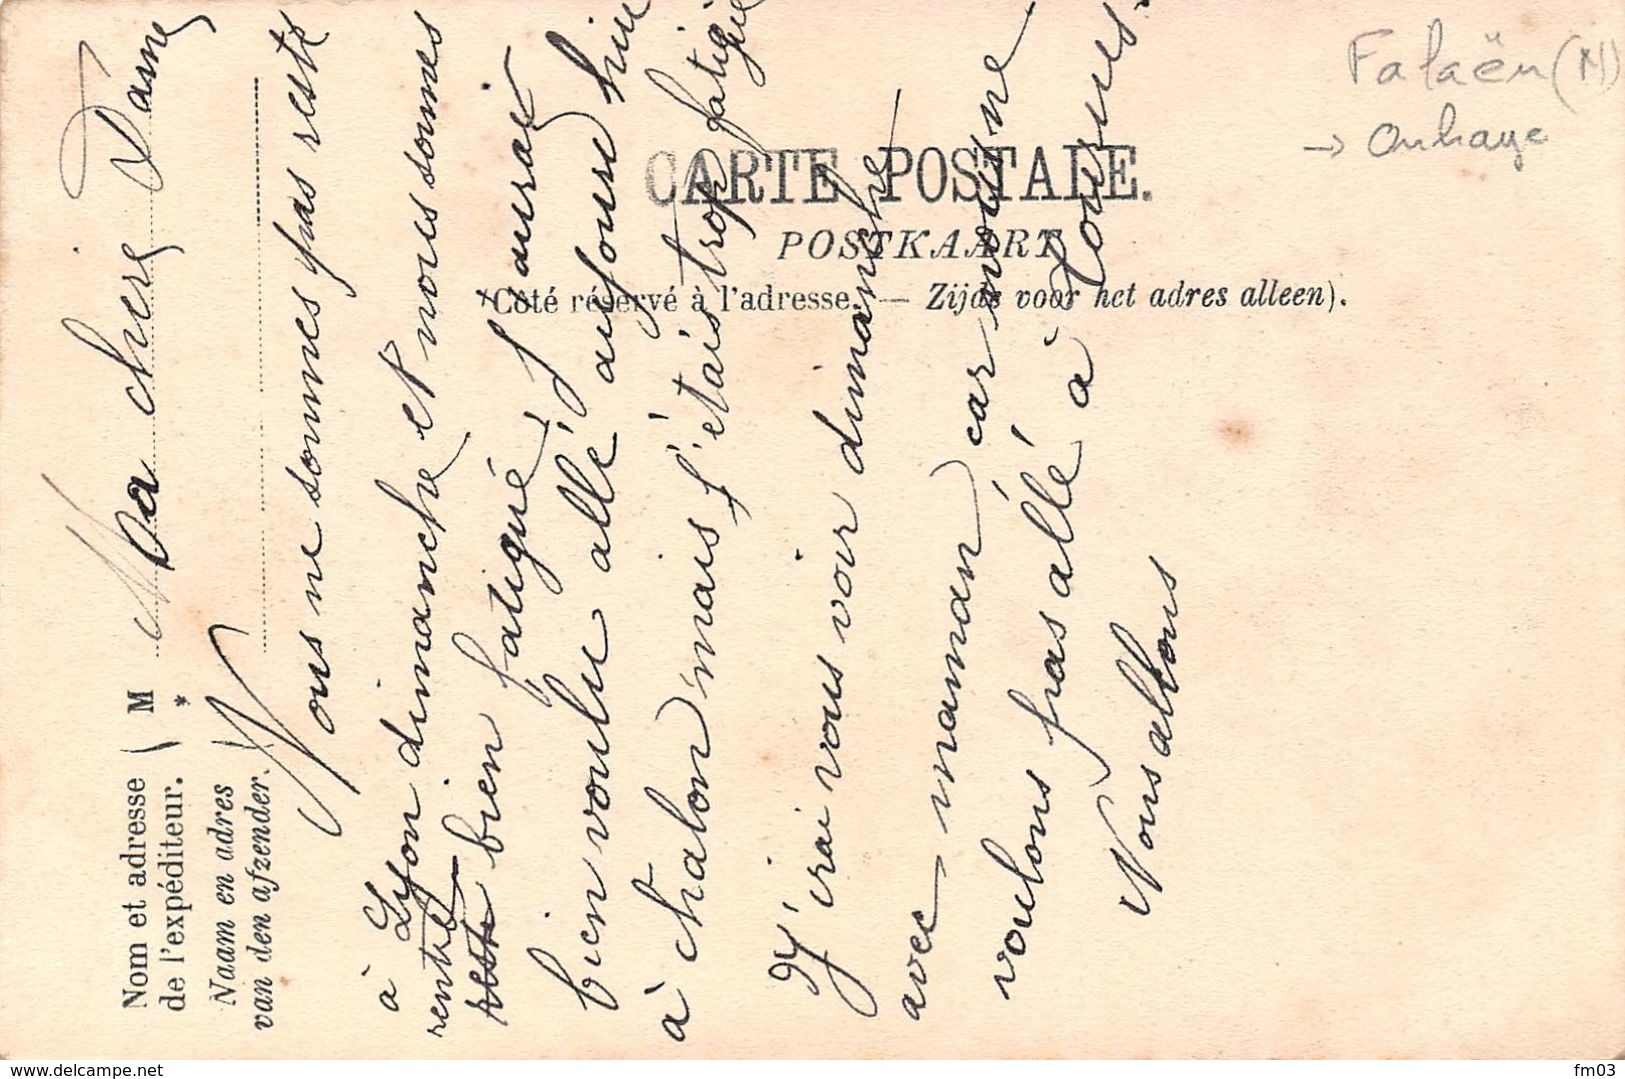 Falaën (N)
→ Onhaye
CARTE POSTALE.
POSTKAART
(Côté réservé à l'adresse. — Zijde voor het adres alleen).
Nom et adresse
de l'expéditeur.
Naam en adres
van den afzender.
M
*
Ma chere
Nous ne sommes pas resté
à Lyon dimanche et nous sommes
rentré
resté bien fatigué, J'aurais
bien voulu allé aujourd'hui
à chalon mais j'étais trop fatigué
J'irai vous voir dimanche
avec maman car nous ne
voulons pas allé à Tournus.
Nous allons
delcampe.net
fm03